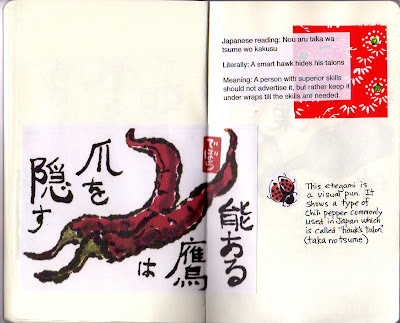 Japanese reading: Nou aru taka wa
tsume wo kakusu
Literally: A smart hawk hides his talons
Meaning: A person with superior skills
should not advertise it, but rather keep it
under wraps till the skills are needed.
能ある
鷹
は
爪を
隠す
でぼら
This etegami is
a visual pun. It
shows a type of
Chili pepper commonly
used in Japan which
is called "hawk's talon."
(taka no tsume)